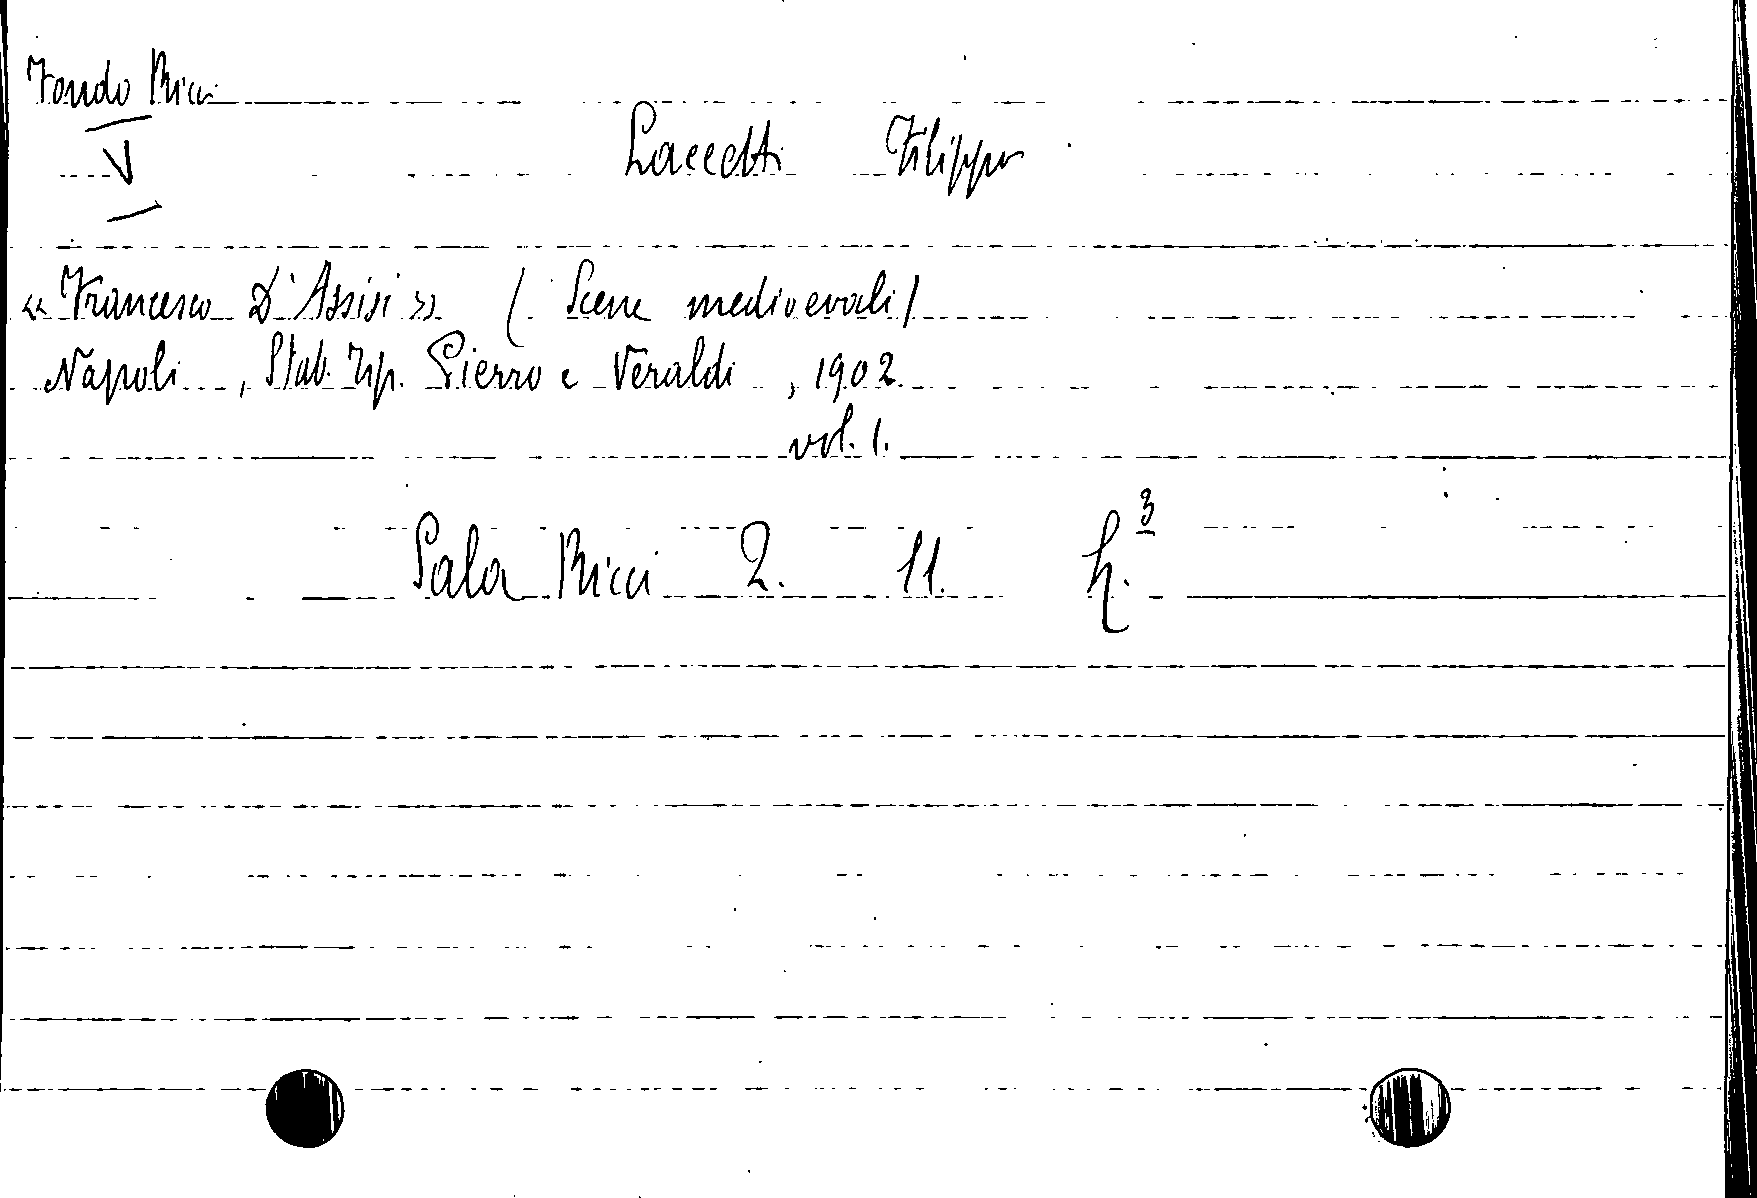 Fondo Ricci
V
Laccetti Filippo
« Francesco D'Assisi » ( Scene medioevali )
Napoli , Stab. Tip. Pierro e Veraldi , 1902.
vol. 1.
Sala Ricci 2. 11. h.3